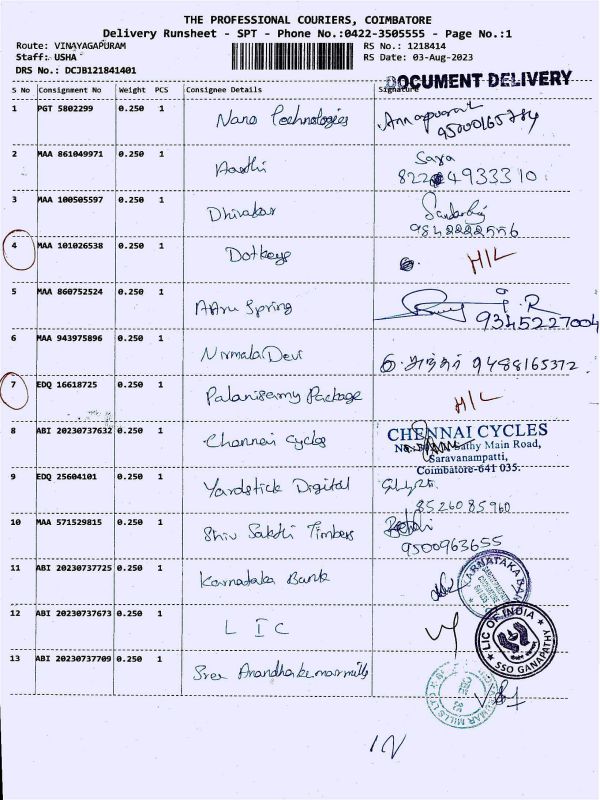 THE PROFESSIONAL COURIERS, COIMBATORE
Delivery Runsheet - SPT - Phone No.:0422-3505555 - Page No.:1
Route: VINAYAGAPURAM RS No.: 1218414
Staff: USHA RS Date: 03-Aug-2023
DRS No.: DCJB121841401
DOCUMENT DELIVERY
S No Consignment No Weight PCS Consignee Details Signature
1 PGT 5802299 0.250 1 Nano Technologies
2 MAA 861049971 0.250 1 Aasthi
4933310
3 MAA 100505597 0.250 1 Dhivakar
9842222556
4 MAA 101026538 0.250 1 Dotkeys H/L
5 MAA 860752524 0.250 1 Spring
9345227004
6 MAA 943975896 0.250 1 Nirmala Devi 9488165372
7 EDQ 16618725 0.250 1 Palanisamy Package H/L
8 ABI 20230737632 0.250 1 Chennai Cycles CHENNAI CYCLES
Sathy Main Road,
Saravanampatti,
Coimbatore-641 035.
9 EDQ 25604101 0.250 1 Yardstick Digital
8526085960
10 MAA 571529815 0.250 1 Shiv Sakthi Timbers
9500963655
11 ABI 20230737725 0.250 1 Karnataka Bank KARNATAKA BANK
12 ABI 20230737673 0.250 1 LIC LIC OF INDIA
SSO GANAPATHY
13 ABI 20230737709 0.250 1 Sree